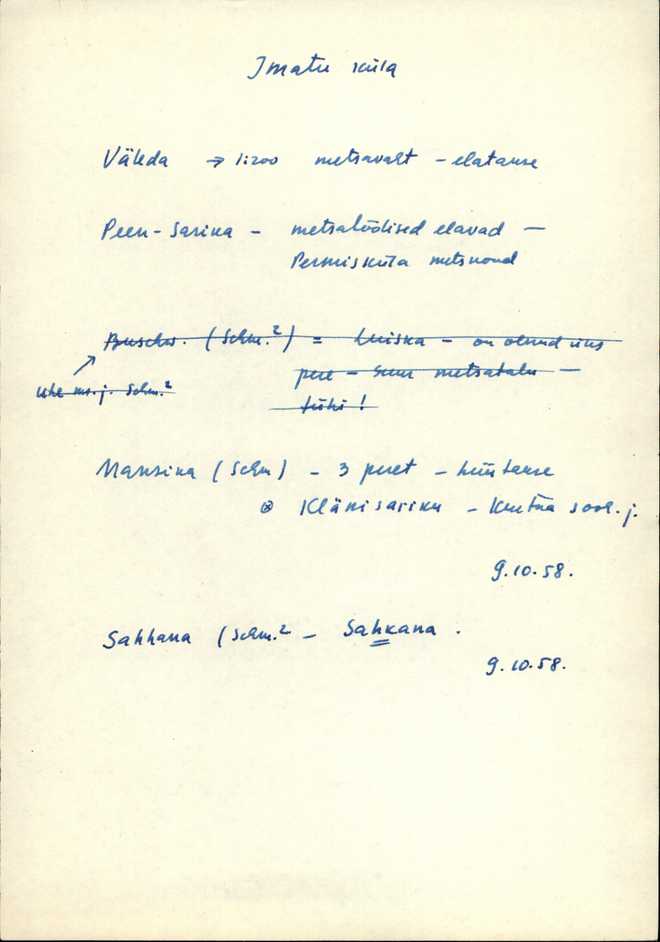 Imatu küla
Väleda → 1:200 metsavaht – elatanse
Peen-Sarika – metsatöölised elavad –
Permisküla metskond
Buschw. (Schm.²) = Luiska – on olnud üks
pere – suur metsatalu –
ühe m.j. Schm.²
tühi!
Mansika (Schm) – 3 peret – hüütakse
⊗ Klänisariku – Kuutna soos. j.
9.10.58.
Sahhana (Schm.² – Sahkana.
9.10.58.